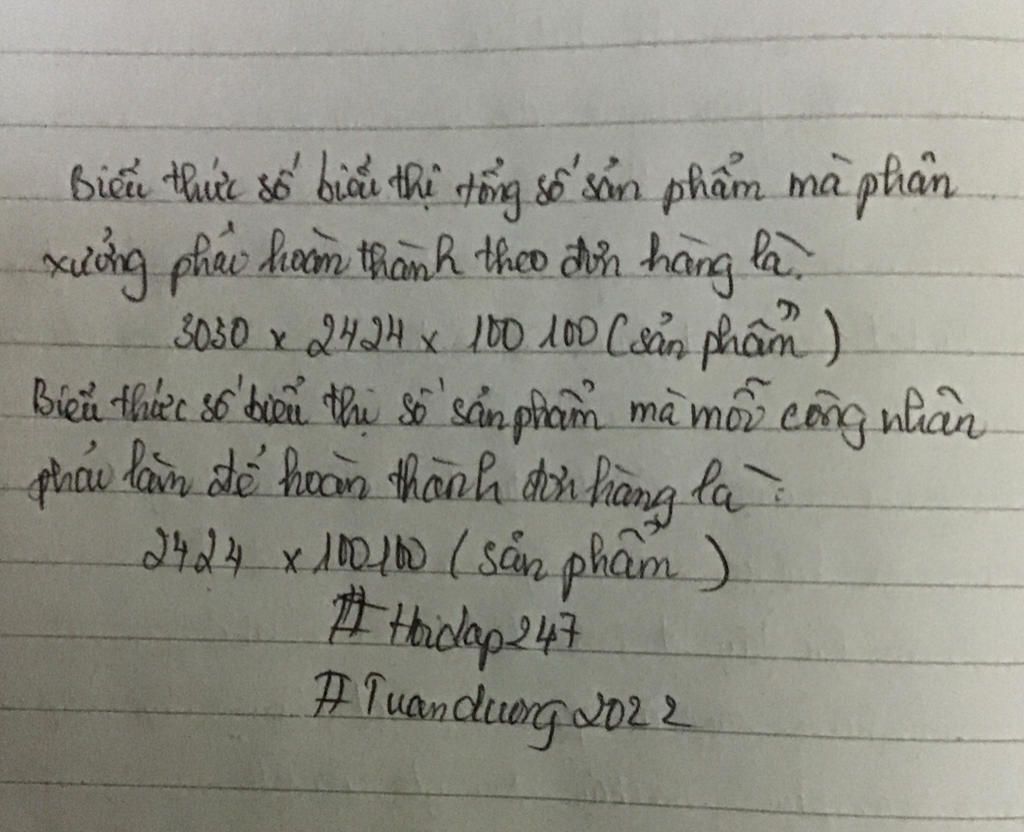 Biểu thức số biểu thị tổng số sản phẩm mà phân
xưởng phải hoàn thành theo đơn hàng là:
3030 x 2424 x 100 100 (sản phẩm)
Biểu thức số biểu thị số sản phẩm mà mỗi công nhân
phải làm để hoàn thành đơn hàng là:
2424 x 100100 (sản phẩm)
#Hoidap247
#Tuanduong2022